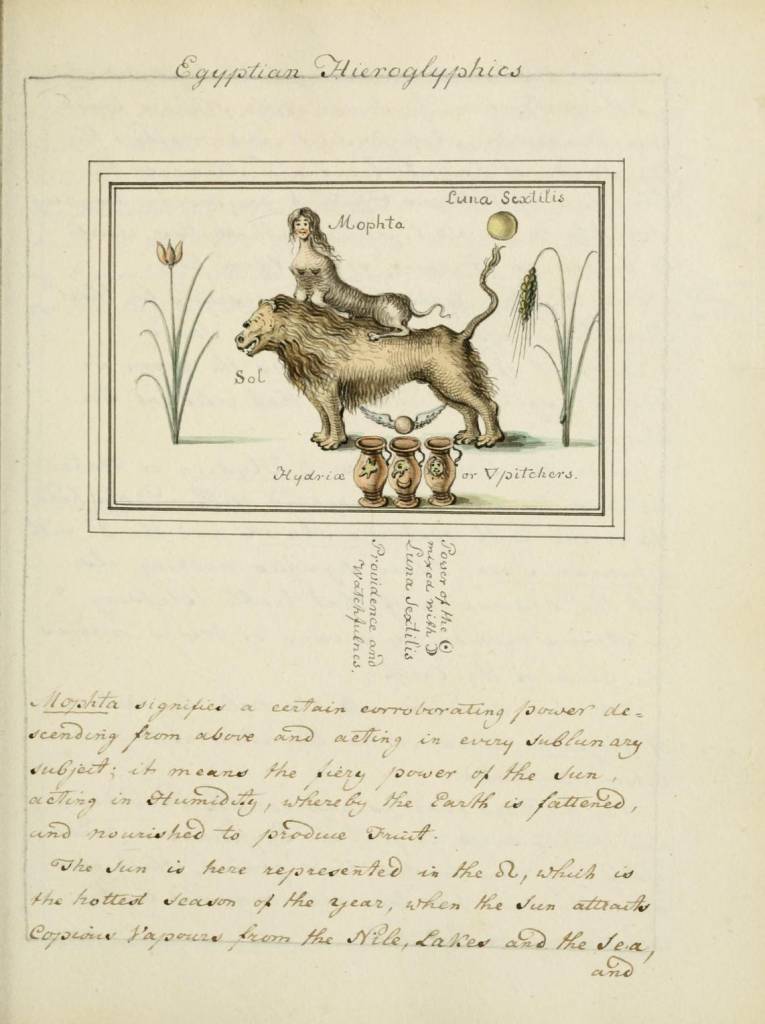 Egyptian Hieroglyphics
Luna Sextilis
Mophta
Sol
Hydriæ
or 🜄 pitchers.
Power of the ☉
mixed with ☽
Luna Sextilis
Providence and
Watchfulnes.
Mophta signifies a certain corroborating power de=
scending from above and acting in every sublunary
subject; it means the fiery power of the Sun,
acting in Humidity, whereby the Earth is fattened,
and nourished to produce Fruit.
The Sun is here represented in the ♌, which is
the hottest season of the year, when the Sun attracts
Copious Vapours from the Nile, Lakes and the Sea,
and